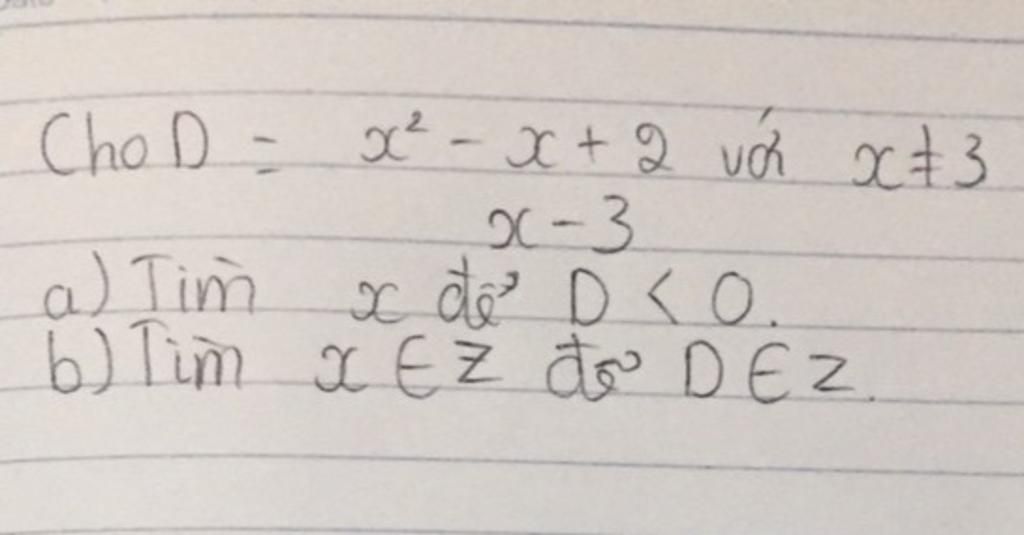 Cho D = x² - x + 2 với x ≠ 3
x - 3
a) Tìm x để D < 0.
b) Tìm x ∈ Z để D ∈ Z.